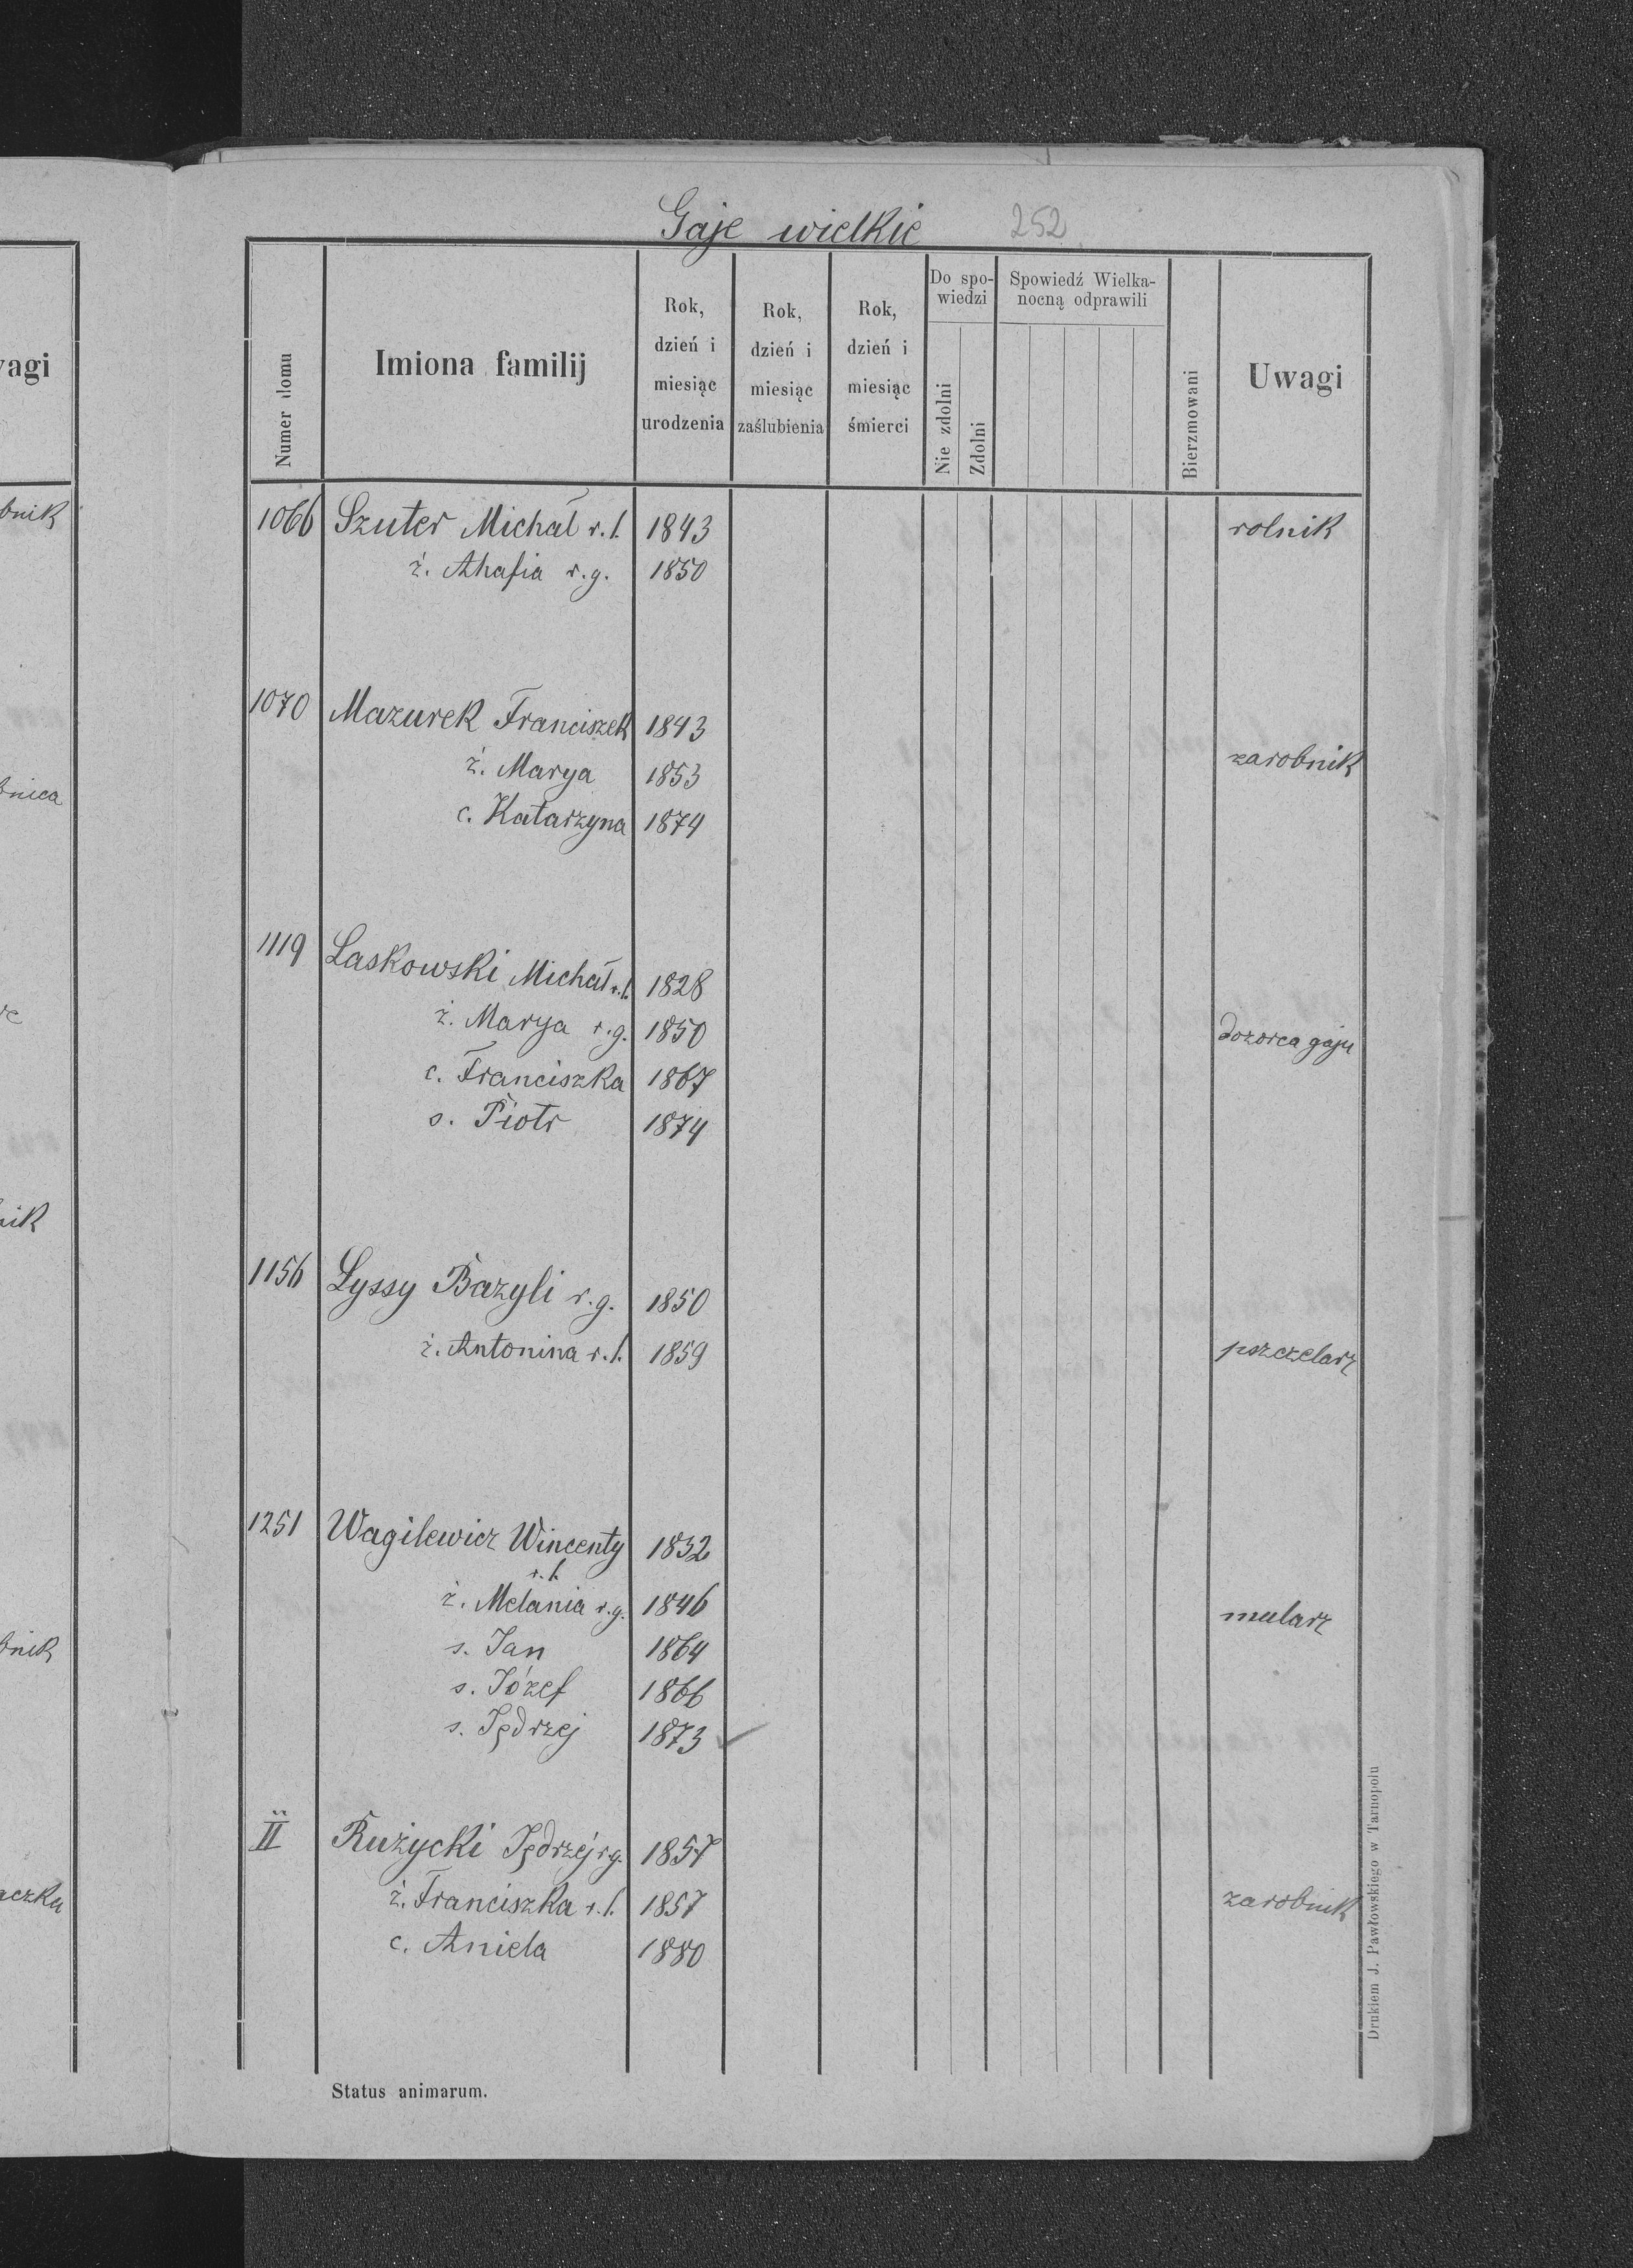 Gaje wielkie 252
Numer domu
Imiona familij
Rok, dzień i miesiąc urodzenia
Rok, dzień i miesiąc zaślubienia
Rok, dzień i miesiąc śmierci
Do spo-
wiedzi
Nie zdolni
Zdolni
Spowiedź Wielka-
nocną odprawili
Bierzmowani
Uwagi
1066 Szuter Michał r. l. 1843 rolnik
ż. Ahafia r. g. 1850
1070 Mazurek Franciszek 1843
ż. Marya 1853 zarobnik
c. Katarzyna 1874
1119 Laskowski Michał r. l. 1828
ż. Marya r. g. 1850 dozorca gaju
c. Franciszka 1867
s. Piotr 1874
1156 Lyssy Bazyli r. g. 1850
ż. Antonina r. l. 1859 pszczelarz
1251 Wagilewicz Wincenty 1832
r. l.
ż. Melania r. g. 1846 mularz
s. Jan 1864
s. Józef 1866
s. Jędrzej 1873
II Rużycki Jędrzej r. g. 1857
ż. Franciszka r. l. 1857 zarobnik
c. Aniela 1880
Status animarum.
Drukiem J. Pawłowskiego w Tarnopolu